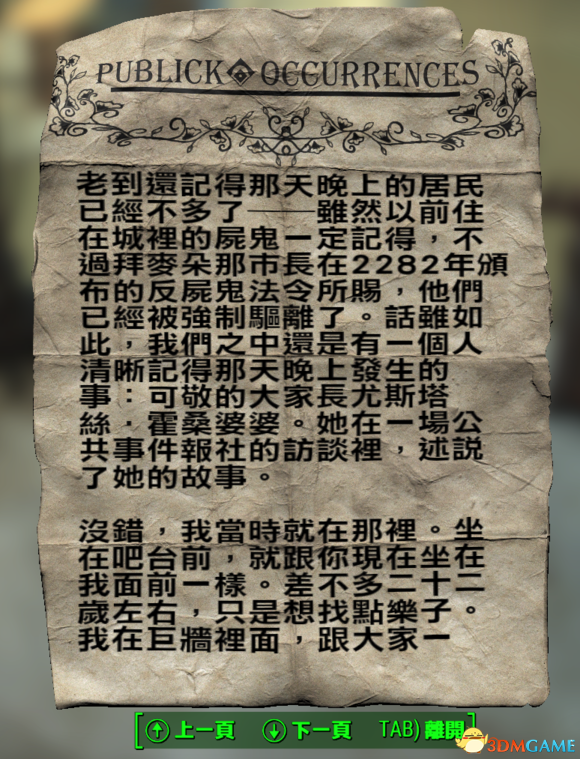 PUBLICK OCCURRENCES
老到還記得那天晚上的居民
已經不多了——雖然以前住
在城裡的屍鬼一定記得，不
過拜麥朵那市長在2282年頒
布的反屍鬼法令所賜，他們
已經被強制驅離了。話雖如
此，我們之中還是有一個人
清晰記得那天晚上發生的
事：可敬的大家長尤斯塔
絲．霍桑婆婆。她在一場公
共事件報社的訪談裡，述說
了她的故事。
沒錯，我當時就在那裡。坐
在吧台前，就跟你現在坐在
我面前一樣。差不多二十二
歲左右，只是想找點樂子。
我在巨牆裡面，跟大家一
上一頁 下一頁 TAB) 離開
3DMGAME